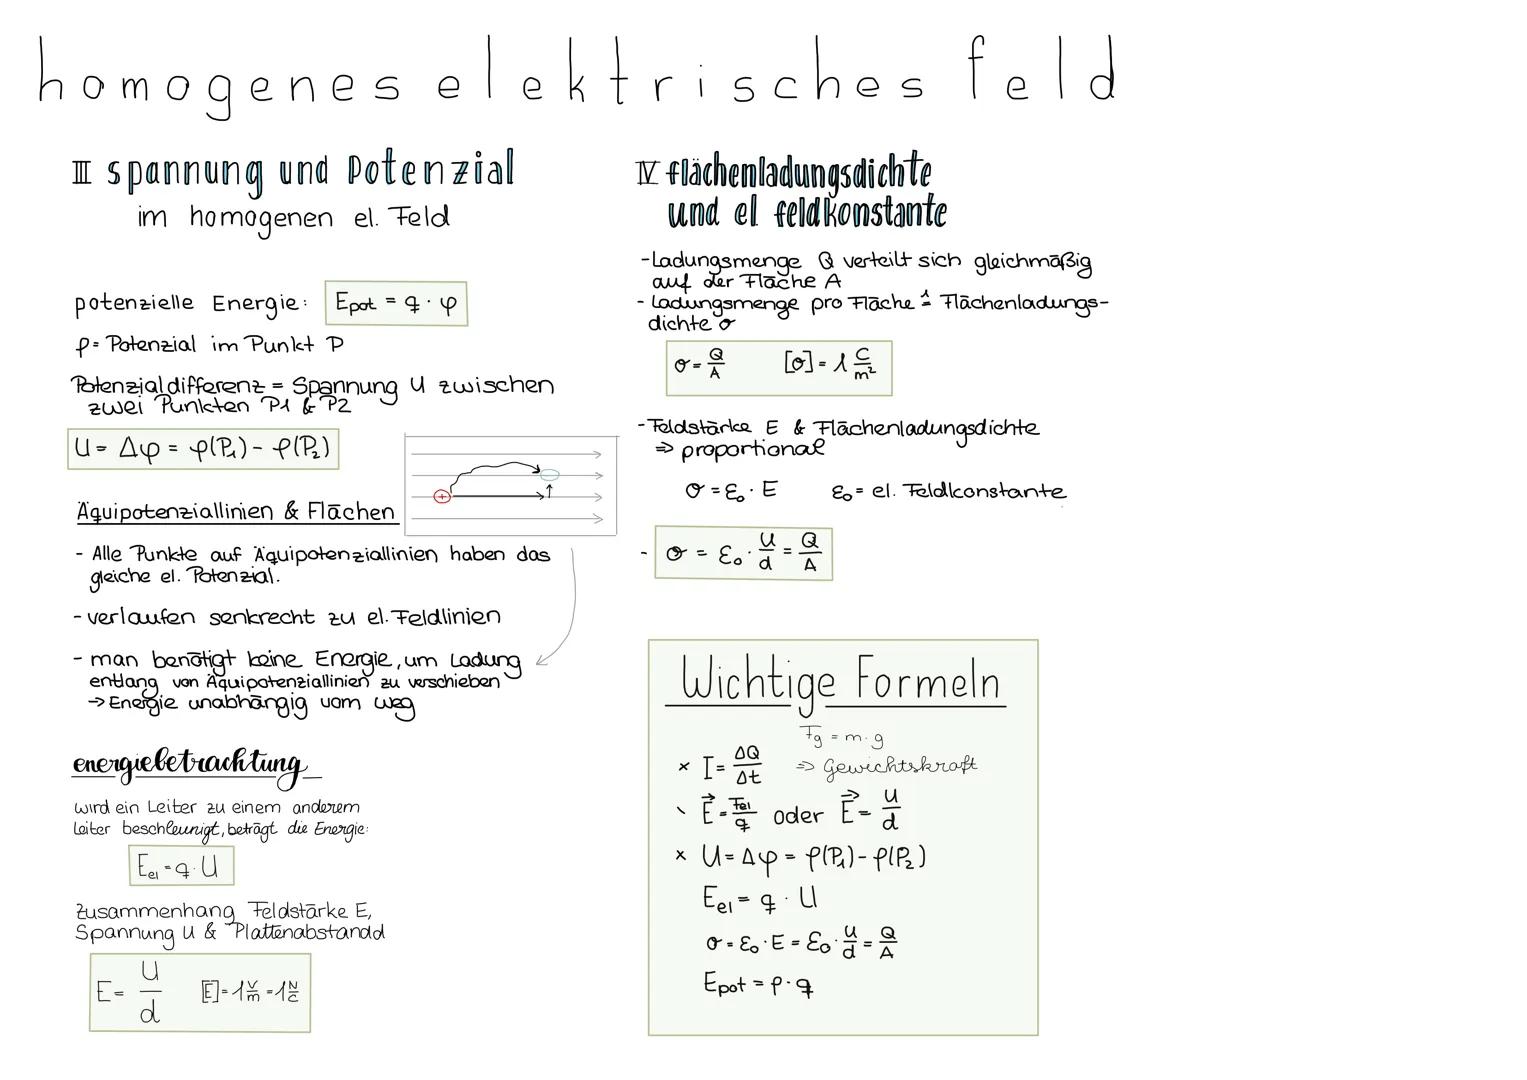 homogenes elektrisches feld
III spannung und Potenzial
im homogenen el. Feld
potenzielle Energie: Epot = q · φ
ρ = Potenzial im Punkt P
Potenzialdifferenz = Spannung U zwischen
zwei Punkten P1 & P2
U = Δφ = ρ(P₁) - ρ(P₂)
Äquipotenziallinien & Flächen
- Alle Punkte auf Äquipotenziallinien haben das
gleiche el. Potenzial.
- verlaufen senkrecht zu el. Feldlinien
- man benötigt keine Energie, um Ladung
entlang von Äquipotenziallinien zu verschieben
→ Energie unabhängig vom weg
energiebetrachtung
wird ein Leiter zu einem anderem
Leiter beschleunigt, beträgt die Energie:
Eel = q · U
Zusammenhang Feldstärke E,
Spannung U & Plattenabstandd
E = U/d [E] = 1 V/m = 1 N/C
IV flächenladungsdichte
und el feldkonstante
- Ladungsmenge Q verteilt sich gleichmäßig
auf der Fläche A
- Ladungsmenge pro Fläche ≙ Flächenladungs-
dichte σ
σ = Q/A [σ] = 1 C/m²
- Feldstärke E & Flächenladungsdichte
⇒ proportional
σ = ε₀ · E ε₀ = el. Feldkonstante
- σ = ε₀ · U/d = Q/A
Wichtige Formeln
Fg = m · g
× I = ΔQ/Δt ⇒ Gewichtskraft
\ E⃗ = Fel/q oder E⃗ = U/d
× U = Δφ = ρ(P₁) - ρ(P₂)
Eel = q · U
σ = ε₀ · E = ε₀ · U/d = Q/A
Epot = ρ · q